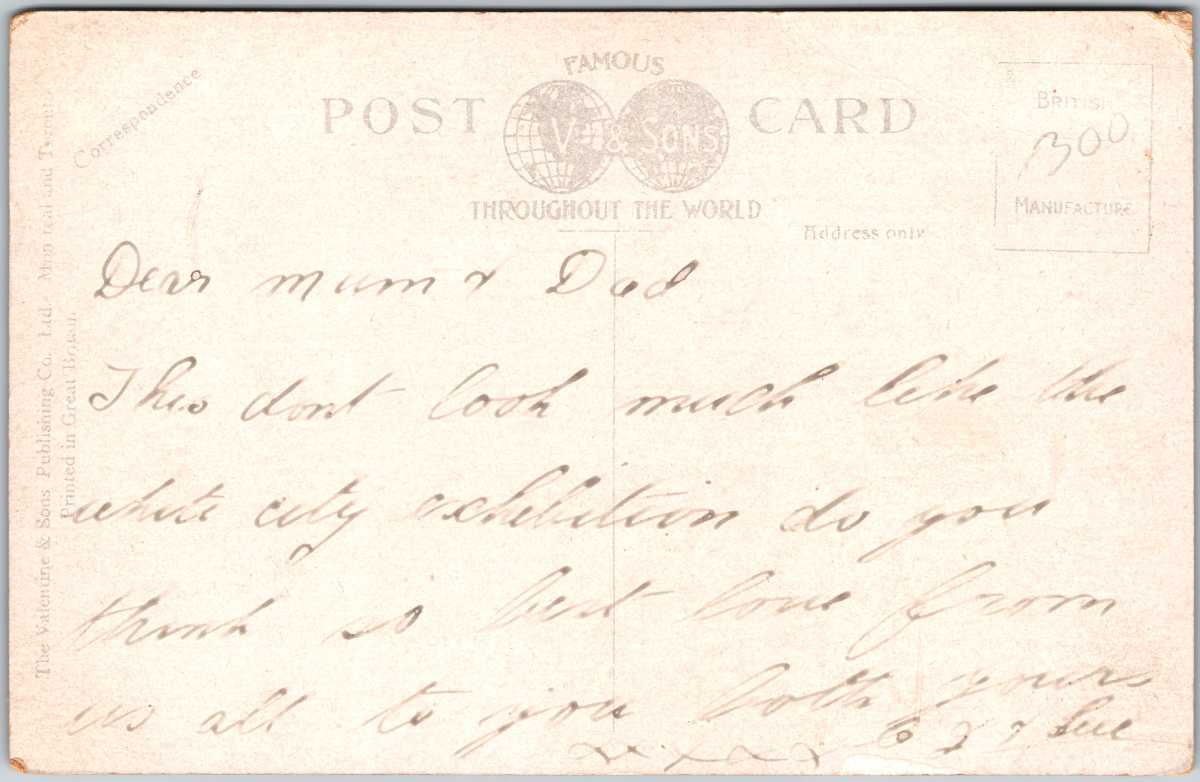 FAMOUS
POST CARD
V & SONS
THROUGHOUT THE WORLD
Correspondence
Address only
BRITISH
300
MANUFACTURE
The Valentine & Sons Publishing Co. Ltd. Montreal and Toronto
Printed in Great Britain.
Dear mum & Dad
This dont look much like the
white city exhibition do you
think so best love from
us all to you both yours
xxxxx